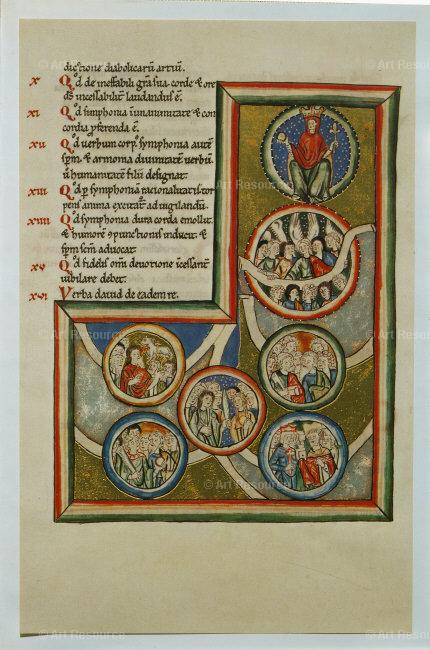 ductione diabolicarū artium.
x Qd de ineffabili grā sua corde & ore
dš incessabilit laudandus ē.
xi Qd simphonia i unanimitate & con
cordia pferenda ē.
xii Qd uerbum corp⁹ symphonia aute
spm. & armonia diuinitate uerbū
ū humanitate filii designat.
xiii Qd p symphoniā racionalitatis tor
pens anima excitat ad uigilandū.
xiiii Qd symphonia dura corda emollit.
& humorē 9punctionis inducit &
spm scm aduocat.
xv Qd fidelis omi deuotione icessant
iubilare debet.
xvi Verba dauid de eadem re.
© Art Resource